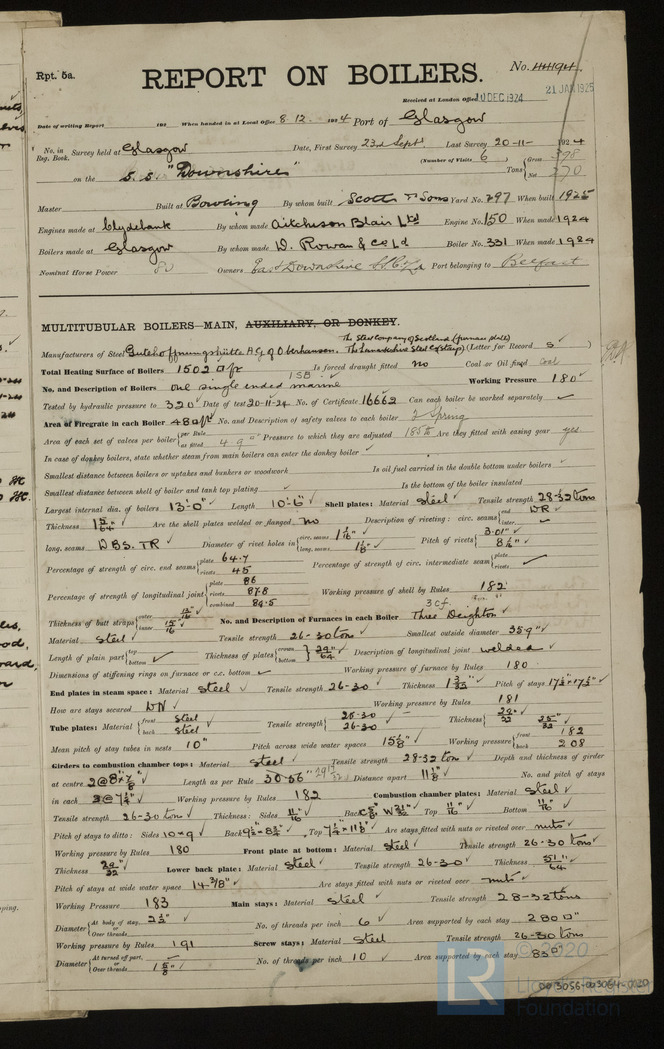 Rpt. 5a.
REPORT ON BOILERS.
No. 44194.
Received at London Office 10 DEC 1924
21 JAN 1925
Date of writing Report 192 When handed in at Local Office 8.12. 1924 Port of Glasgow
No. in Reg. Book. Survey held at Glasgow Date, First Survey 23rd Sept. Last Survey 20-11- 1924
on the S.S. "Downshire" (Number of Visits 6) Tons Gross 398 Net 270
Master Built at Bowling By whom built Scott & Sons Yard No. 297 When built 1925
Engines made at Clydebank By whom made Aitchison Blair Ltd Engine No. 150 When made 1924
Boilers made at Glasgow By whom made D. Rowan & Co Ld Boiler No. 331 When made 1924
Nominal Horse Power 80 Owners East Downshire S.S. Co Ld Port belonging to Belfast
MULTITUBULAR BOILERS—MAIN, AUXILIARY, OR DONKEY.
The Steel Company of Scotland (furnace plate)
Manufacturers of Steel Gutehoffnungshütte A.G. of Oberhausen. The Lanarkshire Steel Co (Strap) (Letter for Record S)
Total Heating Surface of Boilers 1502 □ft Is forced draught fitted no Coal or Oil fired coal
1 SB
No. and Description of Boilers One single ended marine Working Pressure 180
Tested by hydraulic pressure to 320 Date of test 20-11-24 No. of Certificate 16662 Can each boiler be worked separately ✓
Area of Firegrate in each Boiler 48 □ft No. and Description of safety valves to each boiler 2 Spring
Area of each set of valves per boiler per Rule as fitted 4.9 □" Pressure to which they are adjusted 185 lb Are they fitted with easing gear yes
In case of donkey boilers, state whether steam from main boilers can enter the donkey boiler ✓
Smallest distance between boilers or uptakes and bunkers or woodwork Is oil fuel carried in the double bottom under boilers
Smallest distance between shell of boiler and tank top plating Is the bottom of the boiler insulated
Largest internal dia. of boilers 13'-0" Length 10'-6" Shell plates: Material Steel Tensile strength 28-32 tons
Thickness 1 5/64" Are the shell plates welded or flanged no Description of riveting: circ. seams end DR inter. ✓
long. seams DBS. TR Diameter of rivet holes in circ. seams 1 1/16" long. seams 1 1/8" Pitch of rivets 3.01" 8 1/4"
Percentage of strength of circ. end seams plate 64.7 rivets 45 Percentage of strength of circ. intermediate seam plate rivets ✓
Percentage of strength of longitudinal joint plate 86 rivets 87.8 combined 89.5 Working pressure of shell by Rules 182
Thickness of butt straps outer 15/16" inner 15/16" No. and Description of Furnaces in each Boiler 3 cf. Three Deighton
Material Steel Tensile strength 26-30 tons Smallest outside diameter 3'5 9"
Length of plain part top bottom ✓ Thickness of plates crown bottom 29/64" Description of longitudinal joint welded
Dimensions of stiffening rings on furnace or c.c. bottom Working pressure of furnace by Rules 180
End plates in steam space: Material Steel Tensile strength 26-30 Thickness 1 3/32" Pitch of stays
How are stays secured DN Working pressure by Rules 181
Tube plates: Material front Steel back Steel Tensile strength 26-30 26-30 Thickness
Mean pitch of stay tubes in nests 10" Pitch across wide water spaces Working pressure front 182 back 208
Girders to combustion chamber tops: Material Steel Tensile strength 28-32 tons Depth and thickness of girder
at centre 2@8"x7/8" Length as per Rule 30.56" Distance apart 11 1/8" No. and pitch of stays
in each 3@7 1/4" Working pressure by Rules 182 Combustion chamber plates: Material Steel
Tensile strength 26-30 tons Thickness: Sides 11/16" Back Top 11/16" Bottom 11/16"
Pitch of stays to ditto: Sides 10x9 Back Top Are stays fitted with nuts or riveted over nuts
Working pressure by Rules 180 Front plate at bottom: Material Steel Tensile strength 26-30 tons
Thickness 29/32" Lower back plate: Material Steel Tensile strength 26-30 Thickness 51/64"
Pitch of stays at wide water space 14 3/8" Are stays fitted with nuts or riveted over nuts
Working Pressure 183 Main stays: Material Steel Tensile strength 28-32 tons
Diameter At body of stay, or Over threads No. of threads per inch 6 Area supported by each stay 280 □"
Working pressure by Rules 191 Screw stays: Material Steel Tensile strength 26-30 tons
Diameter At turned off part, or Over threads 1 5/8" No. of threads per inch 10 Area supported by each stay
© 2020
LR
Lloyd's Register
Foundation
003056-003064-0020